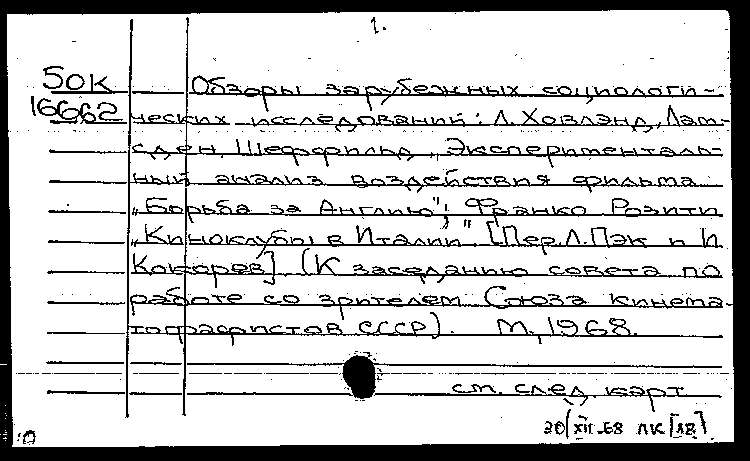 1.
50К Обзоры зарубежных социологи-
16662 ческих исследований: Л. Ховлэнд, Лам-
сден, Шеффильд „Эксперименталь-
ный анализ воздействия фильма
„Борьба за Англию"; Франко Розити
„Киноклубы в Италии". [Пер. Л. Пэк и И
Кокорев] (К заседанию совета по
работе со зрителем Союза кинема-
тографистов СССР). М., 1968.
см. след. карт
20/XII-68 ЛК [ЛВ]